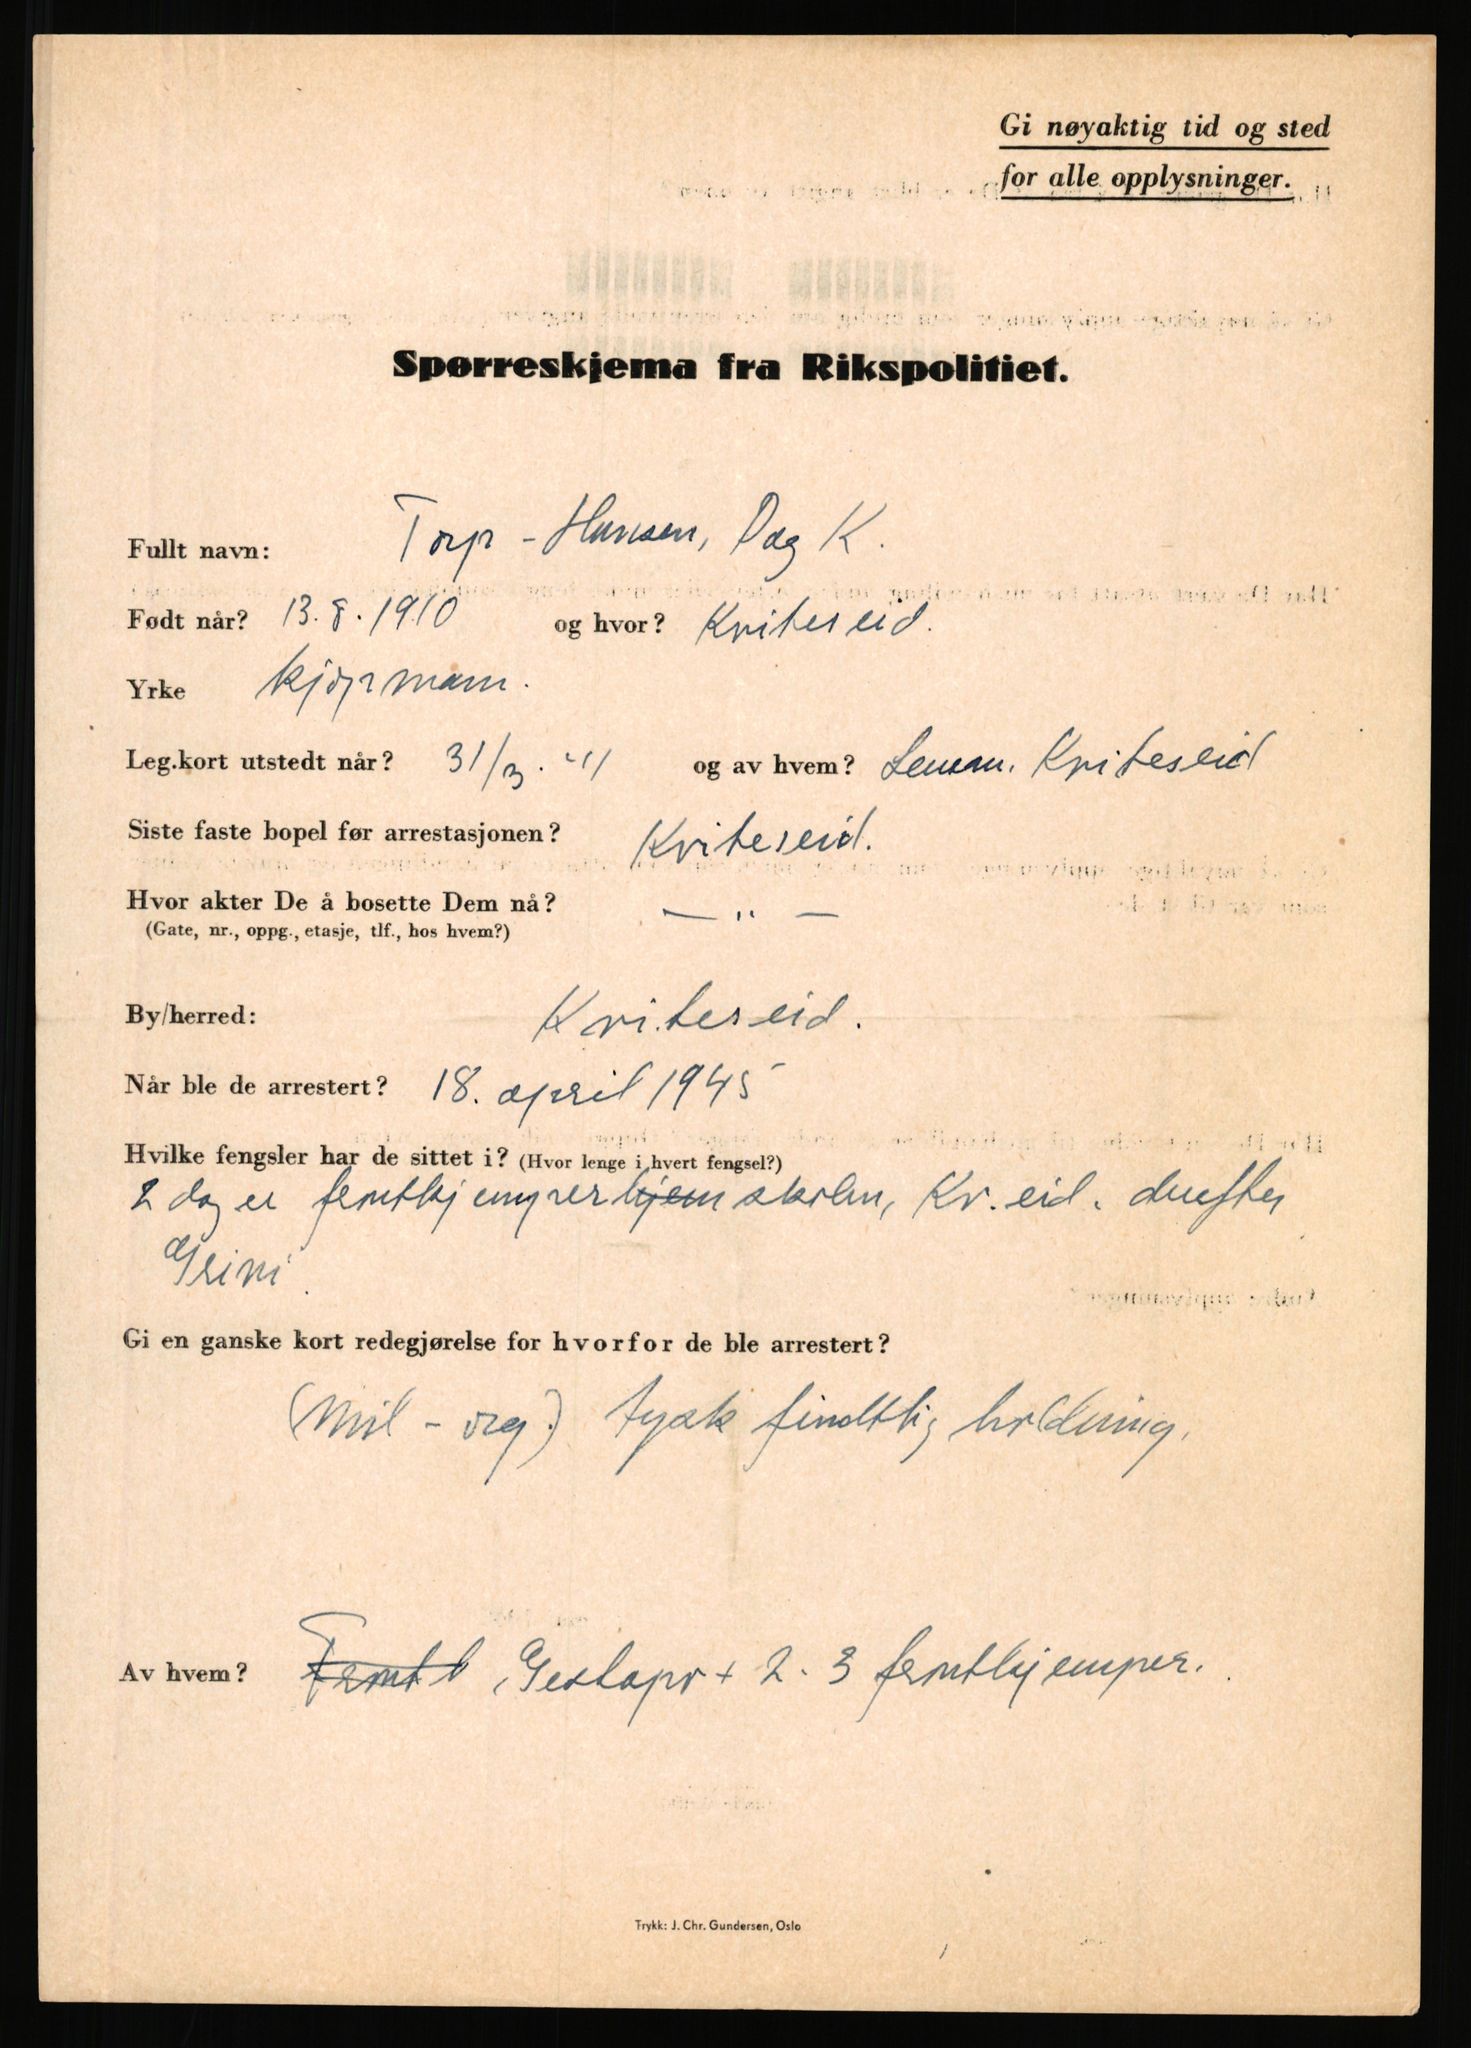 Gi nøyaktig tid og sted
for alle opplysninger.
Spørreskjema fra Rikspolitiet.
Fullt navn: Torp-Hansen, Dag K.
Født når? 13.8.1910 og hvor? Kviteseid.
Yrke kjøpmann.
Leg.kort utstedt når? 31/3. og av hvem? Lensm. Kviteseid
Siste faste bopel før arrestasjonen? Kviteseid.
Hvor akter De å bosette Dem nå? — " —
(Gate, nr., oppg., etasje, tlf., hos hvem?)
By/herred: Kviteseid.
Når ble de arrestert? 18. april 1945
Hvilke fengsler har de sittet i? (Hvor lenge i hvert fengsel?)
2 dager frontkjemperhjem skolen, Kv.eid. derefter
Grini.
Gi en ganske kort redegjørelse for hvorfor de ble arrestert?
(Mil-org.) tysk findtlig holdning.
Av hvem? Frontk, Gestapo + 2-3 frontkjemper.
Trykk: J. Chr. Gundersen, Oslo